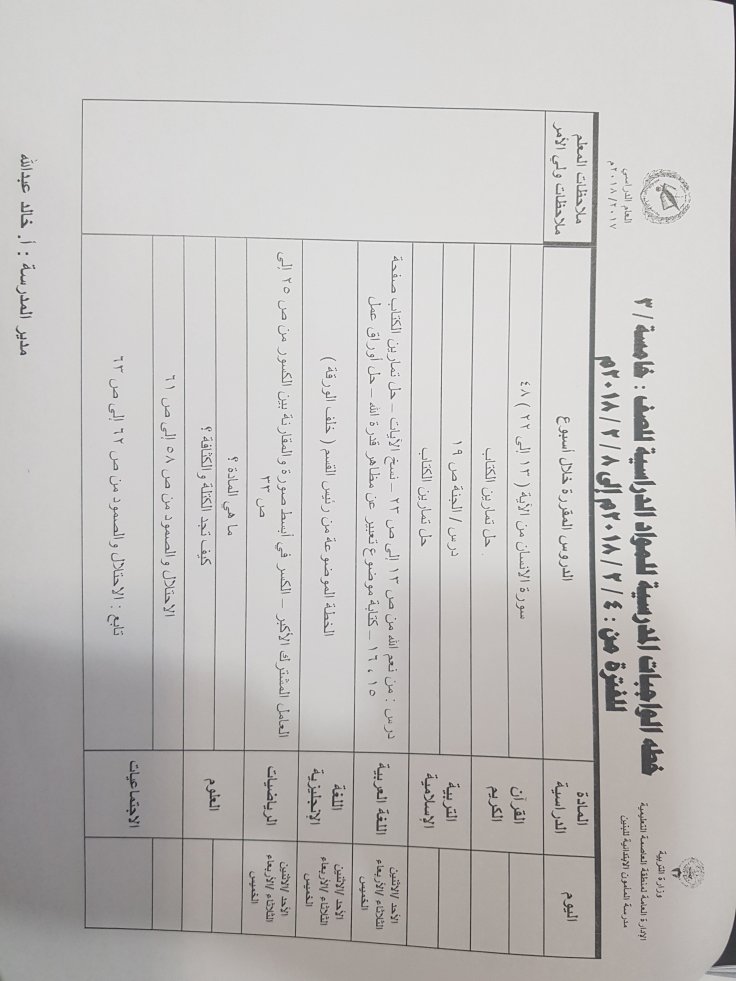 وزارة التربية
الإدارة العامة لمنطقة العاصمة التعليمية
مدرسة المأمون الابتدائية للبنين
العام الدراسي
٢٠١٧/ ٢٠١٨م
خطه الواجبات المدرسية للمواد الدراسية للصف : خامسة / ٣
للفترة من : ٤ / ٢ / ٢٠١٨م إلى ٨ / ٢ / ٢٠١٨م
اليوم
المادة الدراسية
الدروس المقررة خلال أسبوع
ملاحظات المعلم
ملاحظات ولي الأمر
القرآن الكريم
سورة الانسان من الأية ( ١٣ إلى ٢٢ ) ٤٨
حل تمارين الكتاب .
التربية الإسلامية
درس / الجنة ص ١٩
حل تمارين الكتاب
الأحد /الاثنين
الثلاثاء /الأربعاء
الخميس
اللغة العربية
درس : من نعم الله من ص ١٣ إلى ص ٢٣ – نسخ الآيات – حل تمارين الكتاب صفحة
١٥ ، ١٦ – كتابة موضوع تعبير عن مظاهر قدرة الله – حل أوراق عمل
الأحد /الاثنين
الثلاثاء /الأربعاء
الخميس
اللغة الإنجليزية
الخطة الموضوعة من رئيس القسم ( خلف الورقة )
الأحد /الاثنين
الثلاثاء /الأربعاء
الخميس
الرياضيات
العامل المشترك الأكبر – الكسر في أبسط صورة والمقارنة بين الكسور من ص ٢٥ إلى
ص ٣٣
العلوم
ما هي المادة ؟
كيف تجد الكتلة والكثافة ؟
الاجتماعيات
الاحتلال والصمود من ص ٥٨ إلى ص ٦١
تابع : الاحتلال والصمود من ص ٦٢ إلى ص ٦٣
مدير المدرسة : أ. خالد عبدالله